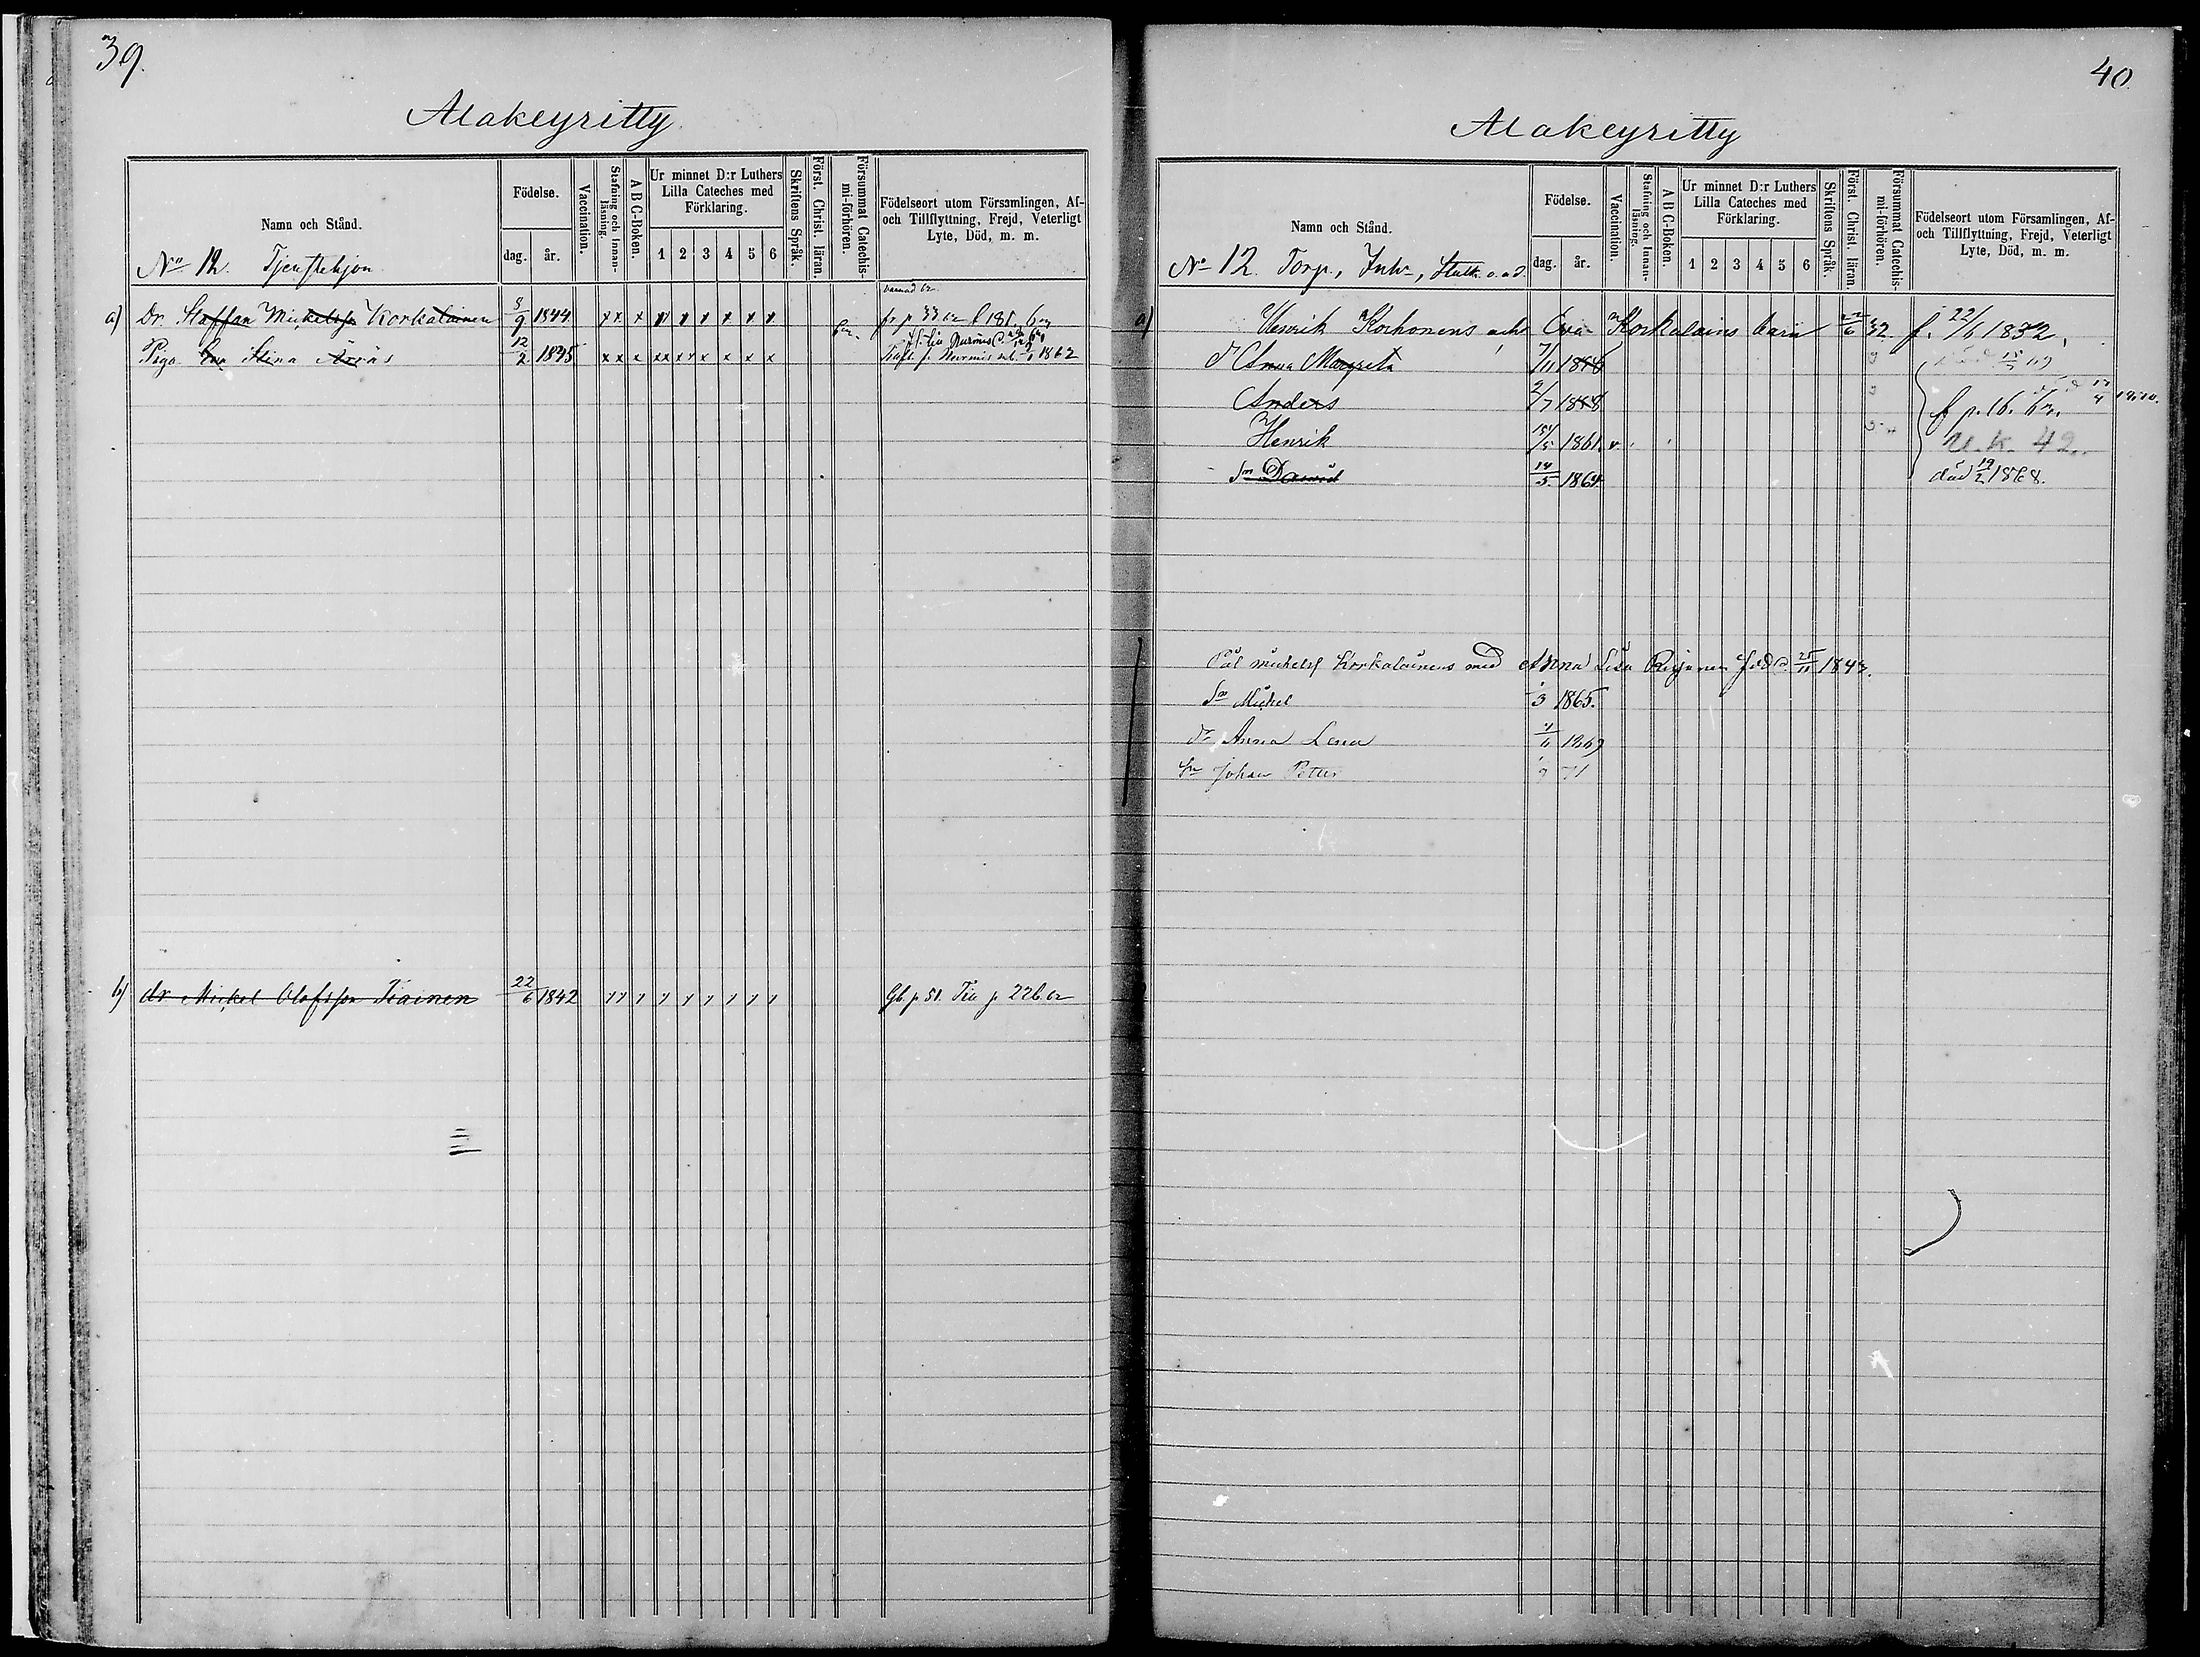 39.
Alakeyritty.
Namn och Stånd.
Födelse.
dag. år.
Vaccination.
Stafning och Innan-läsning.
A B C-Boken.
Ur minnet D:r Luthers Lilla Cateches med Förklaring.
1 2 3 4 5 6
Skriftens Språk.
Först. Christ. läran.
Försummat Catechis-mi-förhören.
Födelseort utom Församlingen, Af- och Tillflyttning, Frejd, Veterligt Lyte, Död, m. m.
No 12. Tjenstehjon
a) Dr. Staffan Mickelsson Korkalainen 8/9 1844 x x x x x x x x x
Piga Eva Stina 12/2 1835 x x x x x x x x x 1862
b) dr Mickel Olofsson Tiainen 22/6 1842 Gb. p 51.
40.
Alakeyritty
Namn och Stånd.
Födelse.
dag. år.
Vaccination.
Stafning och Innan-läsning.
A B C-Boken.
Ur minnet D:r Luthers Lilla Cateches med Förklaring.
1 2 3 4 5 6
Skriftens Språk.
Först. Christ. läran.
Försummat Catechis-mi-förhören.
Födelseort utom Församlingen, Af- och Tillflyttning, Frejd, Veterligt Lyte, Död, m. m.
No 12. Torp., Inh., o.a.d.
a) Henrik Korhonens och Eva Korkalains barn 22/6 32 f. 22/6 1832.
dr Anna Margreta 7/11
Anders 2/7
Henrik 1861. v. U.k. 42.
Sn 14/5 1864 död 19/2 1868.
Pål Michelss Korkalainens med Anna Lisa född d. 25/11
Sn Michel 1/3 1865.
dr Anna Lena
Sn Johan Petter 71